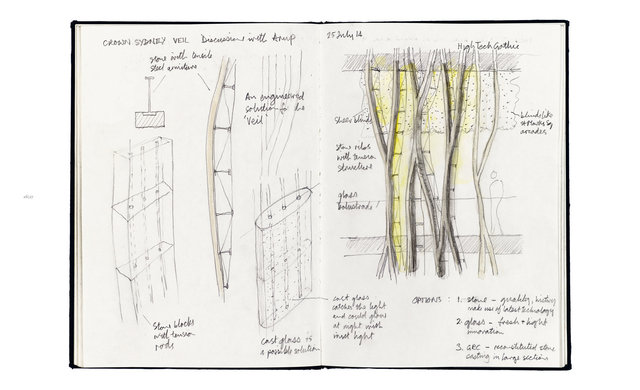 CROWN SYDNEY VEIL Discussions with Arup
stone with tensile
steel armature
An engineered
solution to the
'Veil'
Stone blocks
with tension
rods
cast glass is
a possible solution
25 July 14
High Tech Gothic
sheer blinds
blinds like
St Marks Sq
arcades
stone ribs
with tension
structure
glass
balustrade
cast glass
catches the light
and could glow
at night with
light
OPTIONS : 1. stone - quality, history
make use of latest technology
2. glass - fresh + light
innovation
3. GRC - reconstituted stone
casting in large sections